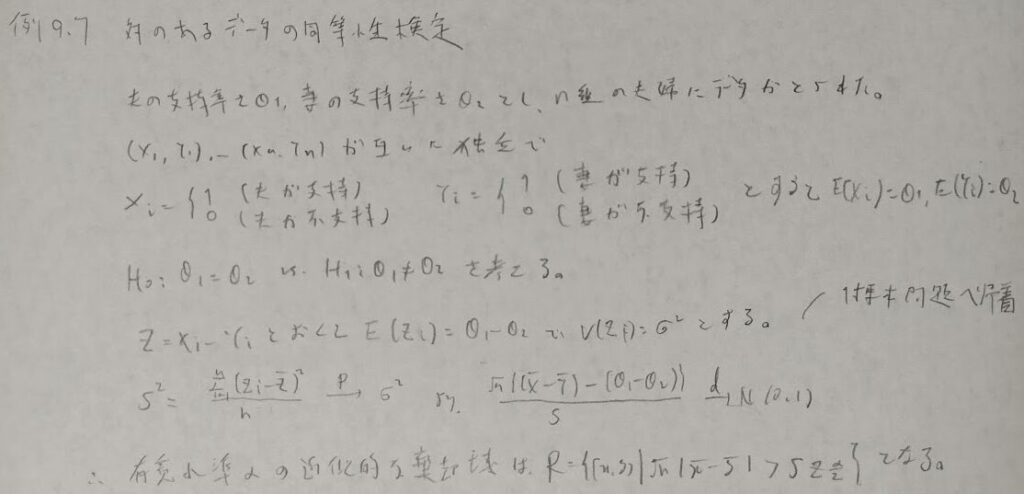 例9.7 対のあるデータの同等性検定
夫の支持率をθ1, 妻の支持率をθ2とし、n組の夫婦にデータがとられた。
(X1, Y1), … (Xn, Yn) が互いに独立で
Xi = { 1 (夫が支持) 0 (夫が不支持) Yi = { 1 (妻が支持) 0 (妻が不支持) とすると E(Xi)=θ1, E(Yi)=θ2
H0: θ1=θ2 vs. H1: θ1≠θ2 を考える。
1標本問題へ帰着
Z = Xi - Yi とおくと E(Zi) = θ1-θ2 で V(Zi) = σ² とする。
S² = Σ(Zi-Z̄)² / n →P σ² より, √n((X̄-Ȳ)-(θ1-θ2)) / S →d N(0,1)
∴ 有意水準αの近似的な棄却域は R = {(x, y) | √n|x̄-ȳ| > S z α/2} となる。